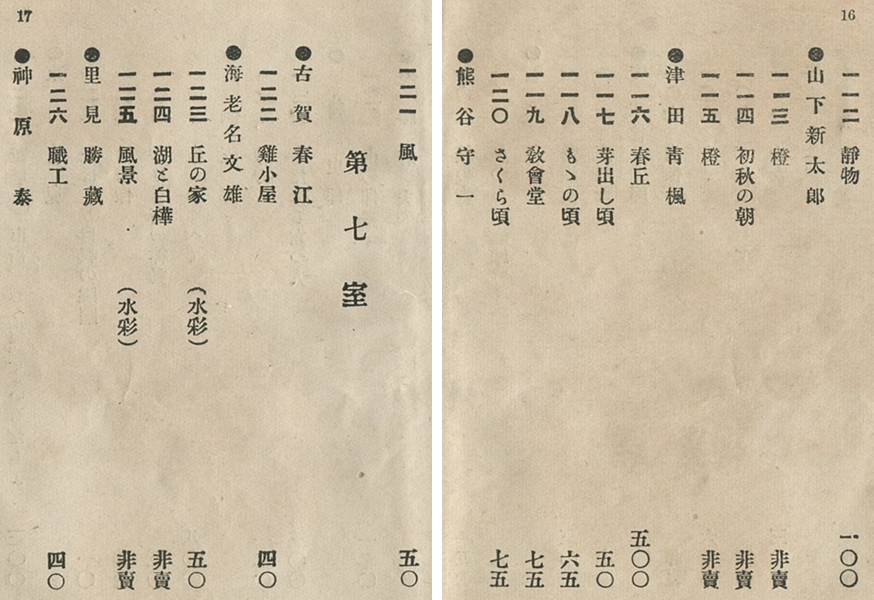 16
一一二 靜物 一〇〇
●山下新太郎
一一三 橙 非賣
一一四 初秋の朝 非賣
一一五 橙 非賣
●津田靑楓
一一六 春丘 五〇〇
一一七 芽出し頃 五〇
一一八 もゝの頃 六五
一一九 敎會堂 七五
一二〇 さくら頃 七五
●熊谷守一
17
一二一 風 五〇
第七室
●古賀春江
一二二 雞小屋 四〇
●海老名文雄
一二三 丘の家 (水彩) 五〇
一二四 湖と白樺 非賣
一二五 風景 (水彩) 非賣
●里見勝藏
一二六 職工 四〇
●神原泰